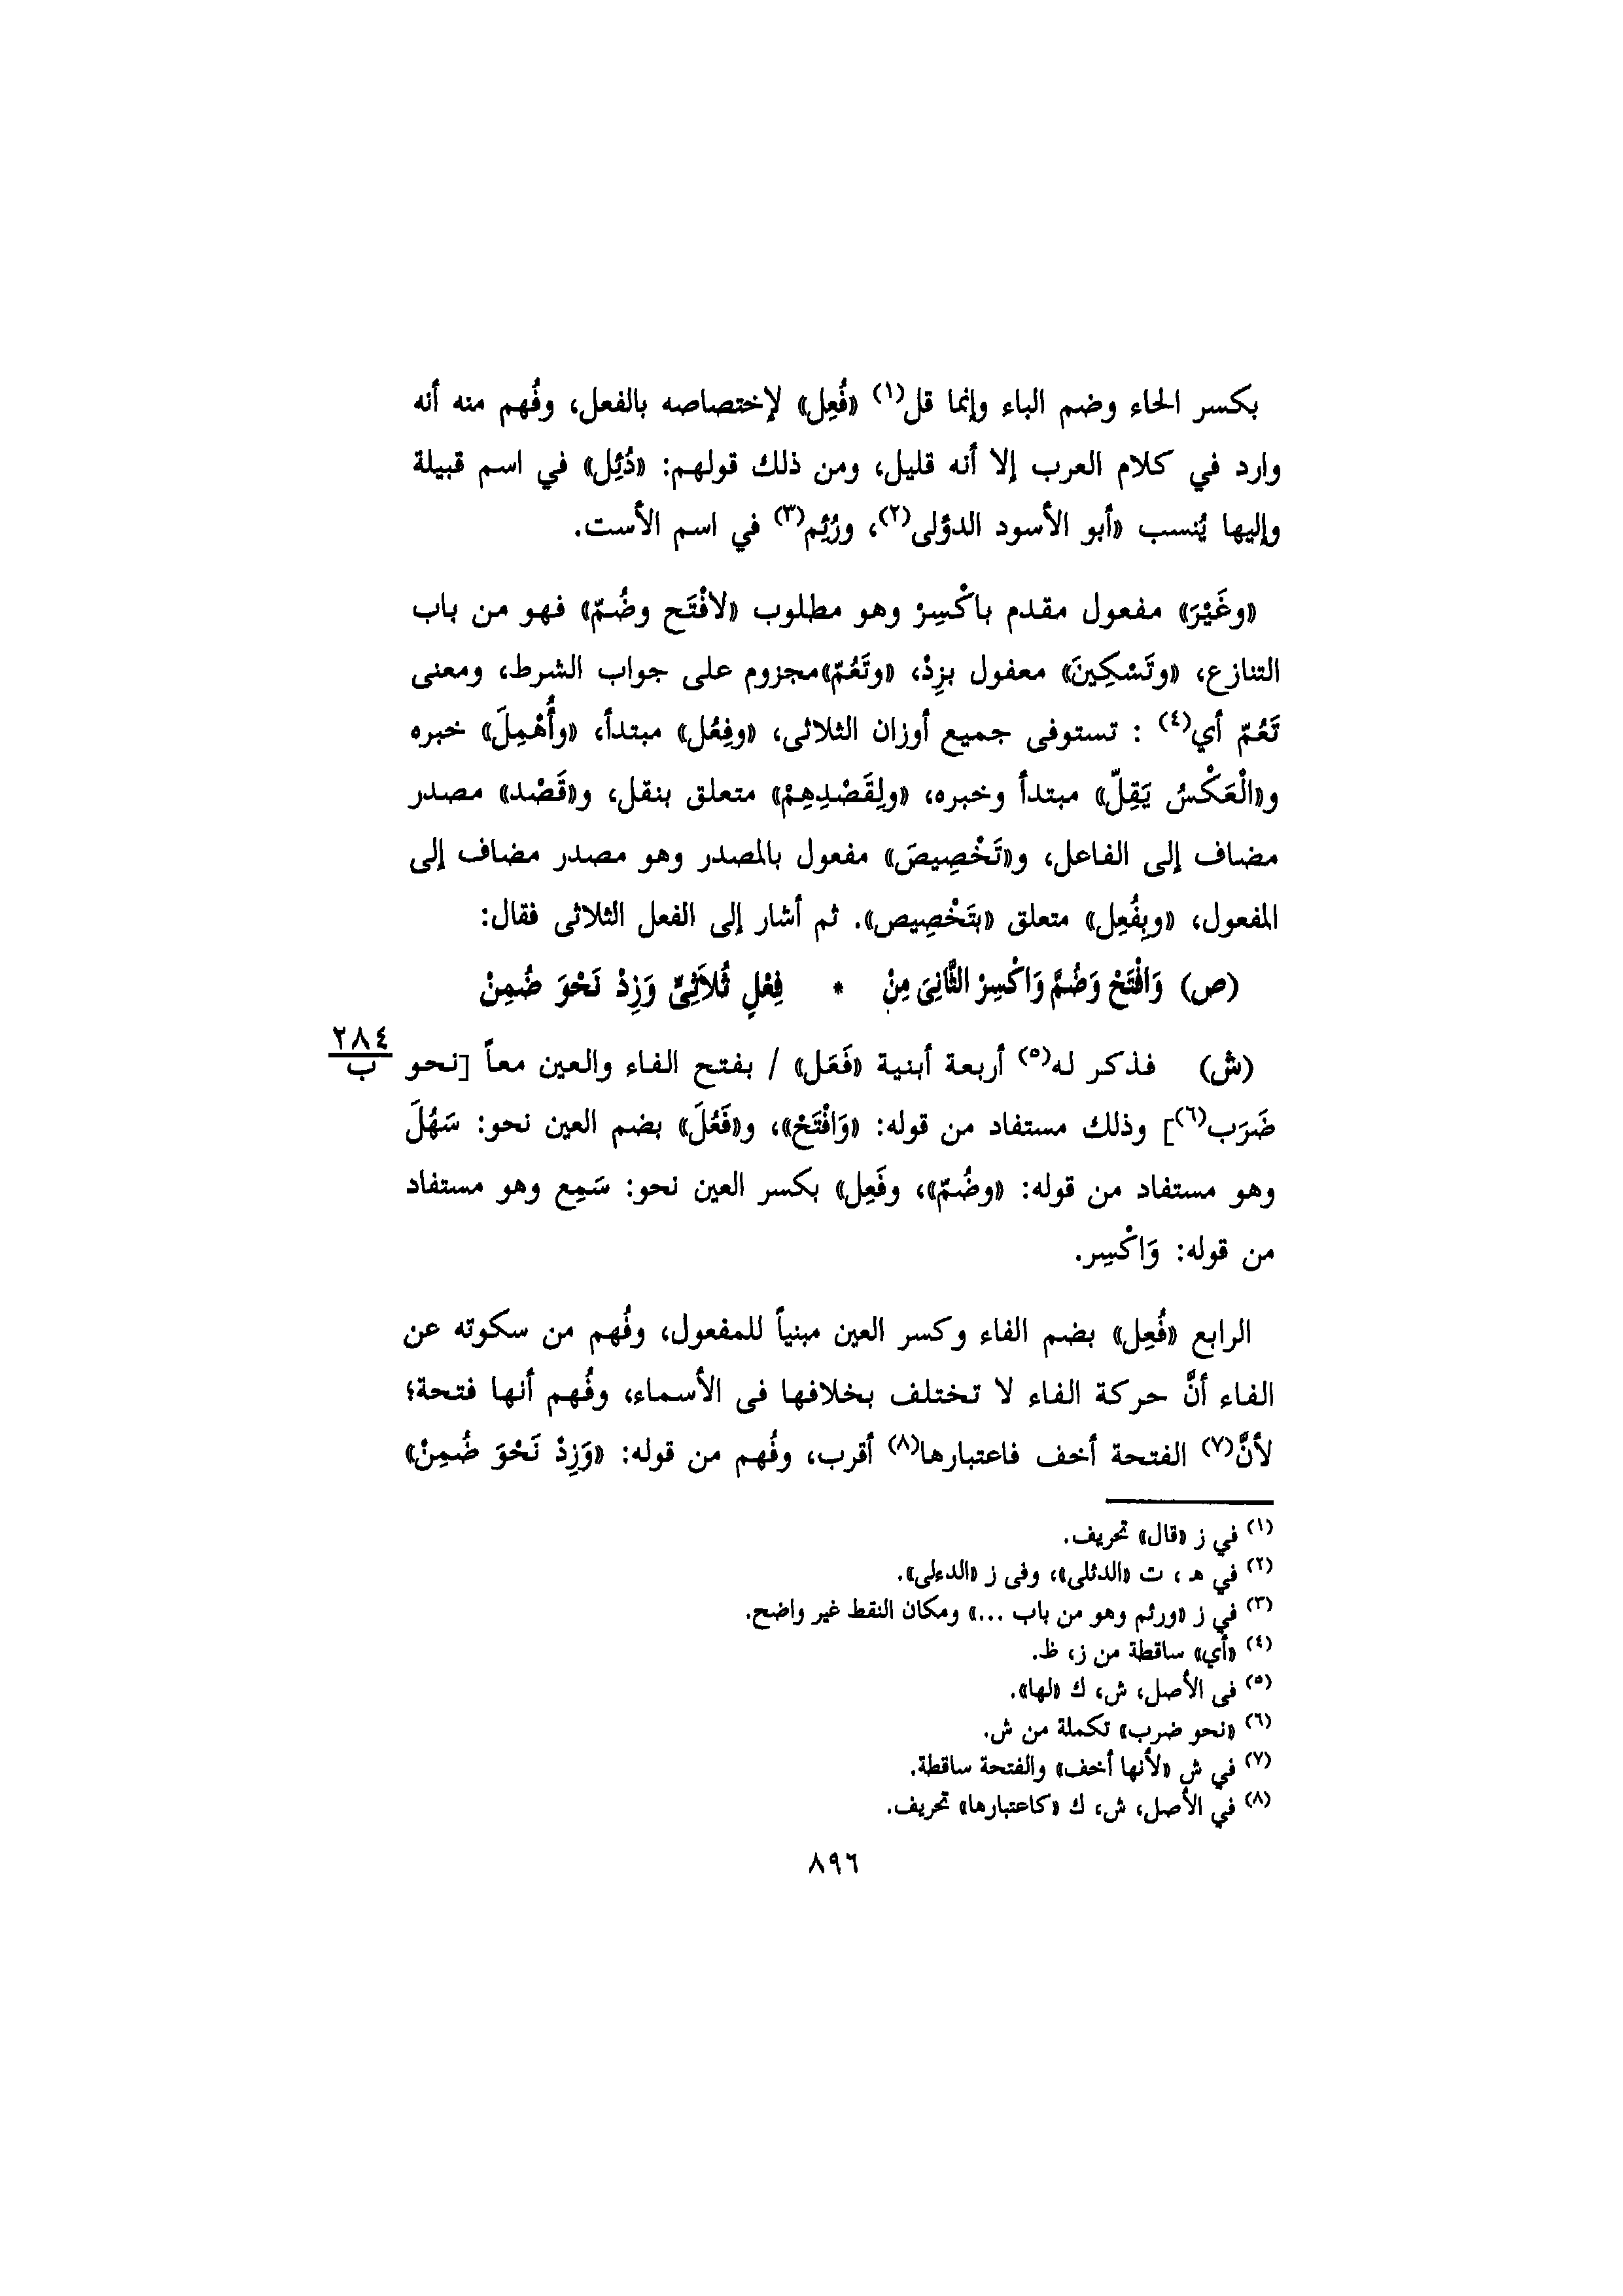 بكسر الحاء وضم الباء وإنما قل(١) «فُعِل» لإختصاصه بالفعل، وفُهم منه أنه
وارد في كلام العرب إلا أنه قليل، ومن ذلك قولهم: «دُئِل» في اسم قبيلة
وإليها يُنسب «أبو الأسود الدؤلى(٢)، ورُئِم(٣) في اسم الأست.
«وغَيْرَ» مفعول مقدم باكْسِرْ وهو مطلوب «لافْتَح وضُمّ» فهو من باب
التنازع، «وتَسْكِينَ» معفول بزِدْ، «وتَعُمّ»مجزوم على جواب الشرط، ومعنى
تَعُمّ أي(٤) : تستوفى جميع أوزان الثلاثى، «وفِعُل» مبتدأ، «وأُهْمِلَ» خبره
و«الْعَكْسُ يَقِلّ» مبتدأ وخبره، «ولِقَصْدِهِمْ» متعلق بنقل، و«قَصْد» مصدر
مضاف إلى الفاعل، و«تَخْصِيصَ» مفعول بالمصدر وهو مصدر مضاف إلى
المفعول، «وبِفُعِل» متعلق «بتَخْصِيص». ثم أشار إلى الفعل الثلاثى فقال:
(ص) وَافْتَحْ وَضُمَّ وَاكْسِرْ الثَّانِىَ مِنْ * فِعْلٍ ثُلاَثِىٍّ وَزِدْ نَحْوَ ضُمِنْ
(ش) فذكر له(٥) أربعة أبنية «فَعَل» / بفتح الفاء والعين معاً [نحو
٢٨٤
ب
ضَرَب(٦)] وذلك مستفاد من قوله: «وَافْتَحْ»، و«فَعُلَ» بضم العين نحو: سَهُلَ
وهو مستفاد من قوله: «وضُمّ»، وفَعِل» بكسر العين نحو: سَمِع وهو مستفاد
من قوله: وَاكْسِر.
الرابع «فُعِل» بضم الفاء وكسر العين مبنياً للمفعول، وفُهم من سكوته عن
الفاء أنَّ حركة الفاء لا تختلف بخلافها فى الأسماء، وفُهم أنها فتحة؛
لأنَّ(٧) الفتحة أخف فاعتبارها(٨) أقرب، وفُهم من قوله: «وَزِدْ نَحْوَ ضُمِنْ»
(١) في ز «قال» تحريف.
(٢) في هـ ، ت «الدئلى»، وفى ز «الدءلى».
(٣) في ز «ورئم وهو من باب ...» ومكان النقط غير واضح.
(٤) «أي» ساقطة من ز، ظ.
(٥) فى الأصل، ش، ك «لها».
(٦) «نحو ضرب» تكملة من ش.
(٧) في ش «لأنها أخف» والفتحة ساقطة.
(٨) في الأصل، ش، ك «كاعتبارها» تحريف.
٨٩٦